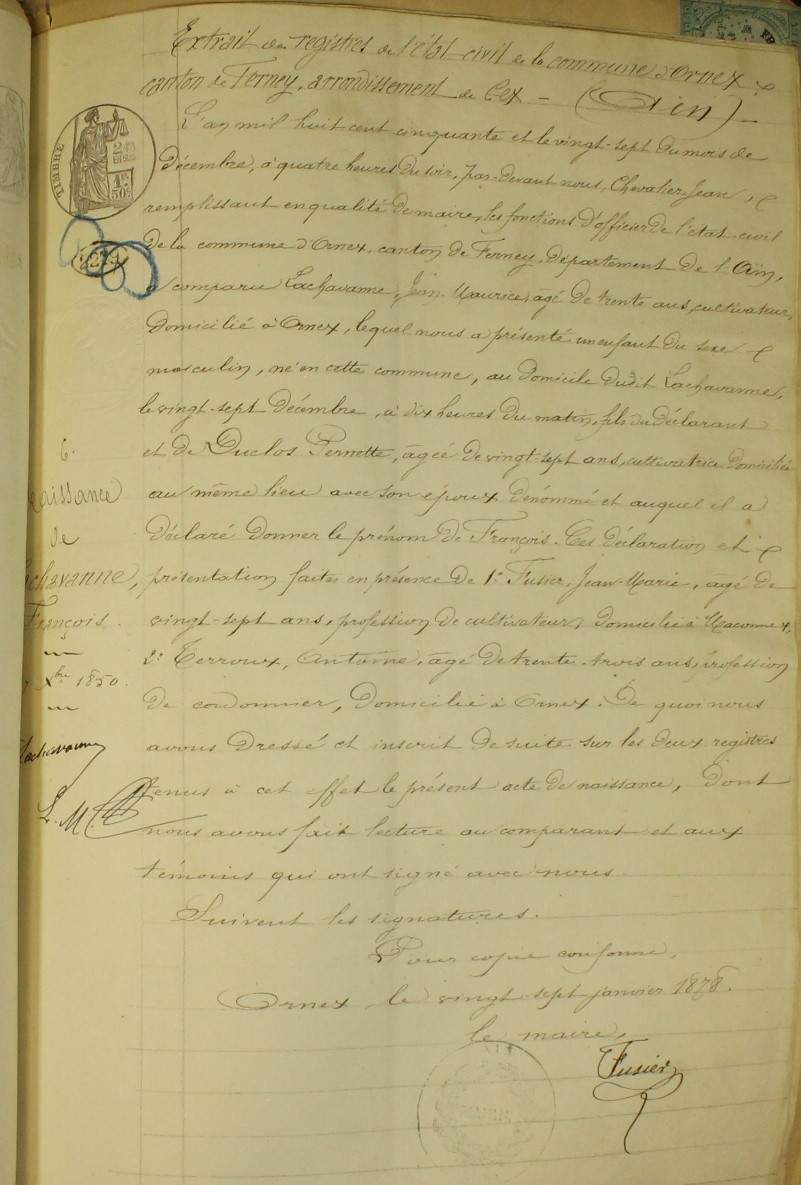 Extrait des registres de l'état civil de la commune d'Ornex
canton de Ferney, arrondissement de Gex – (Ain) –
L'an mil huit cent cinquante et le vingt-sept du mois de
Décembre, à quatre heures du soir, par-devant nous, Chevalier Jean,
remplissant en qualité de maire, les fonctions d'officier de l'état civil
de la commune d'Ornex, canton de Ferney, département de l'Ain,
a comparu Lachavanne, Jean Maurice, âgé de trente ans, cultivateur,
domicilié à Ornex, lequel nous a présenté un enfant du sexe
masculin, né en cette commune, au domicile dudit Lachavanne,
le vingt-sept décembre, à dix heures du matin, fils du déclarant
et de Duclos Pernette, âgée de vingt-sept ans, cultivatrice domiciliée
au même lieu avec son époux dénommé et auquel il a
déclaré donner le prénom de François. Ces déclaration et
présentation faites en présence de 1° Fusier, Jean-Marie, âgé de
vingt-sept ans, profession de cultivateur, domicilié à Maconnex,
2° Terroux, Antoine, âgé de trente-trois ans, profession
de cordonnier, domicilié à Ornex. De quoi nous
avons dressé et inscrit de suite sur les deux registres
tenus à cet effet le présent acte de naissance, dont
nous avons fait lecture au comparant et aux
témoins qui ont signé avec nous
Suivent les signatures.
Pour copie conforme,
Ornex, le vingt-sept janvier 1878.
le maire,
Fusier
TIMBRE
6.
naissance
de
Lachavanne,
François.
Xbre 1850.
Lachavanne
L. M.